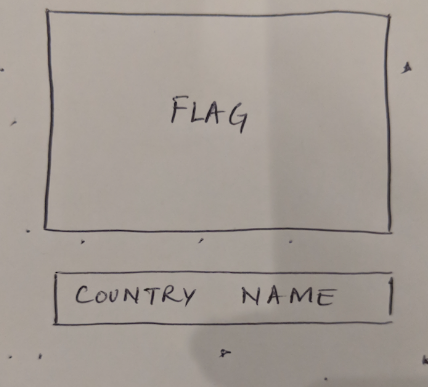 FLAG
COUNTRY NAME